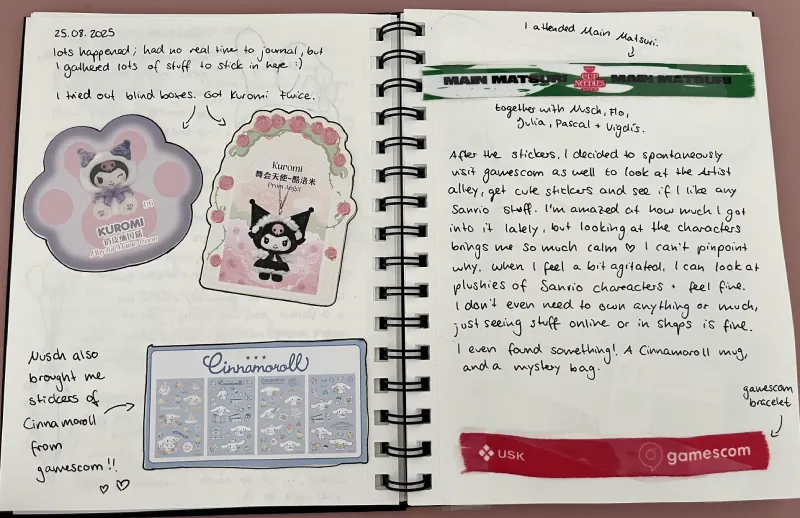 25.08.2025
lots happened; had no real time to journal, but
I gathered lots of stuff to stick in here :)
I tried out blind boxes. Got Kuromi twice.
1/6
KUROMI
Kuromi
舞会天使-酷洛米
Prom Angel
Nusch also
brought me
stickers of
Cinnamoroll
from
gamescom!!
Cinnamoroll
I attended Main Matsuri.
MAIN MATSURI CUP NOODLES MAIN MATSURI
together with Nusch, Flo,
Julia, Pascal + Vigdís.
After the stickers, I decided to spontaneously
visit gamescom as well to look at the Artist
alley, get cute stickers and see if I like any
Sanrio stuff. I'm amazed at how much I got
into it lately, but looking at the characters
brings me so much calm ♡ I can't pinpoint
why. When I feel a bit agitated, I can look at
plushies of Sanrio characters + feel fine.
I don't even need to own anything or much,
just seeing stuff online or in shops is fine.
I even found something! A Cinnamoroll mug,
and a mystery bag.
gamescom
bracelet
USK gamescom